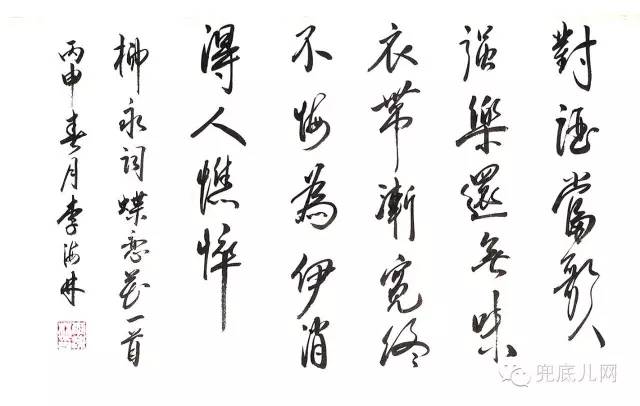 對酒當歌
强樂還無味
衣帶漸寬終
不悔為伊消
得人憔悴
柳永詞蝶恋花一首
丙申春月李海林
兜底儿网